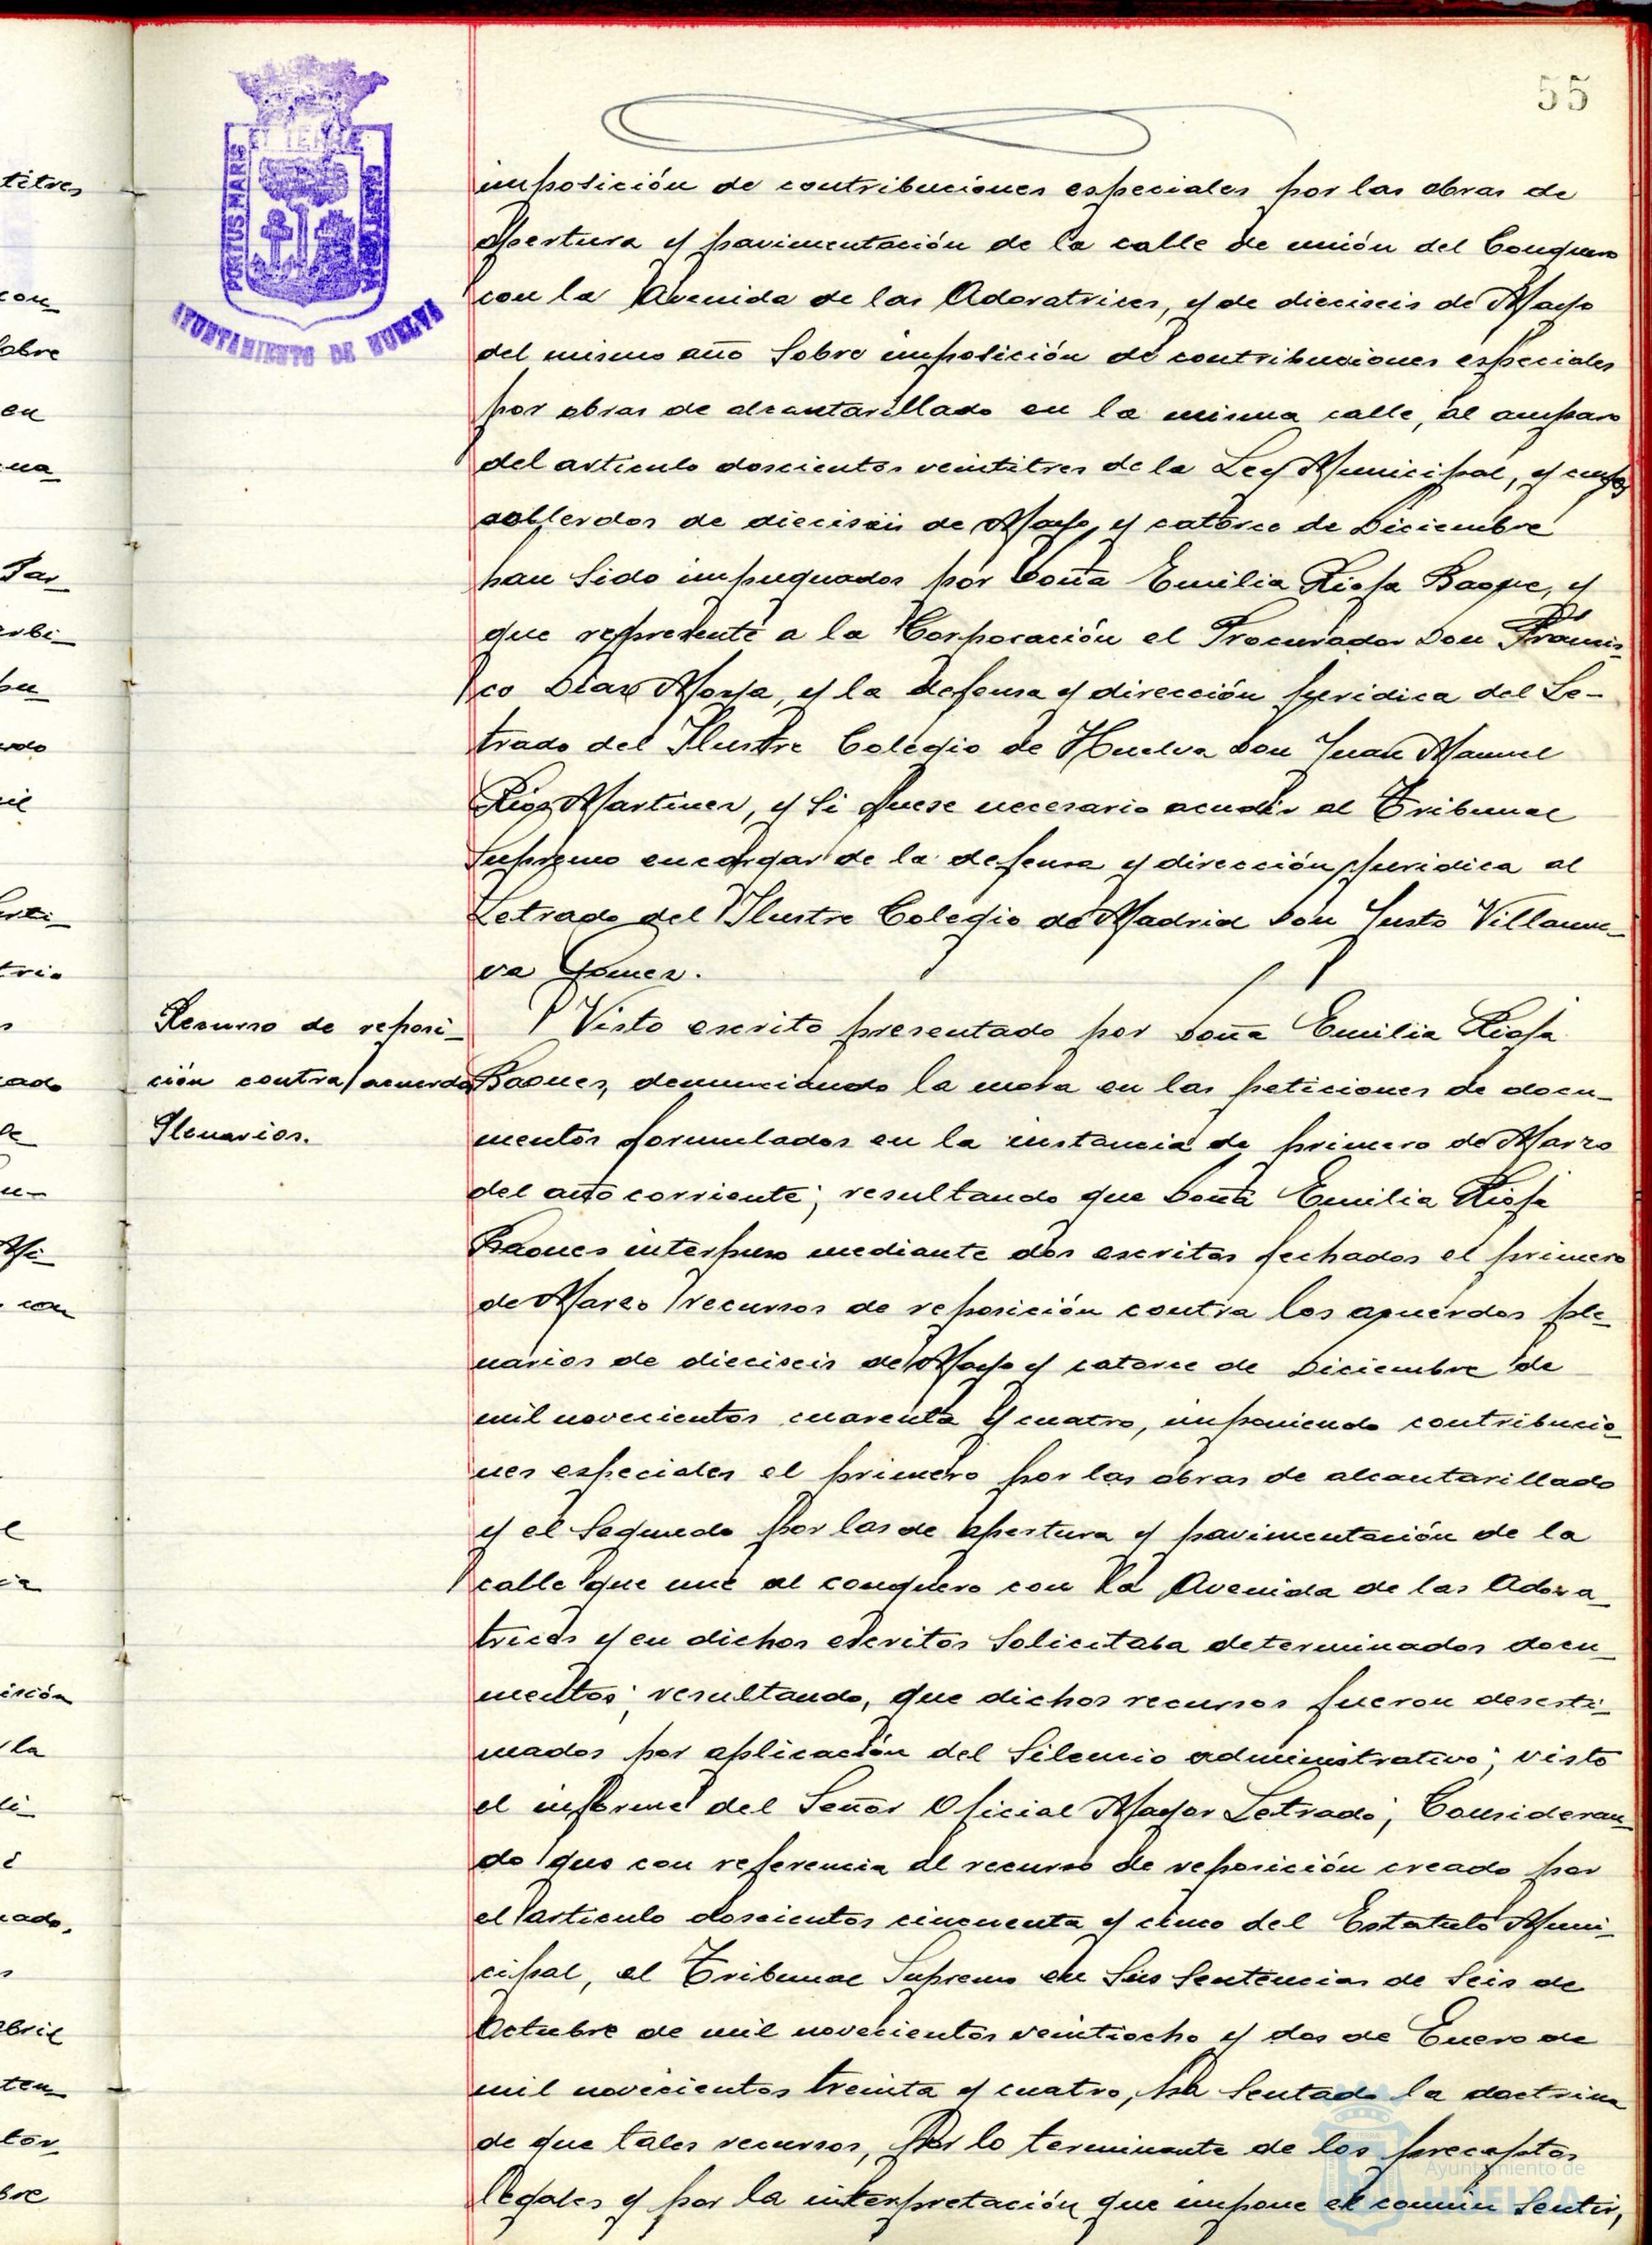 55
PORTUS MARIS
ET TERRAE
CUSTODIA
AYUNTAMIENTO DE HUELVA
imposición de contribuciones especiales por las obras de
apertura y pavimentación de la calle de unión del Conquero
con la Avenida de las Adoratrices, y de dieciseis de Mayo
del mismo año sobre imposición de contribuciones especiales
por obras de alcantarillado en la misma calle, al amparo
del articulo doscientos veintitres de la Ley Municipal, y cuyos
de dieciseis de Mayo, y catorce de Diciembre
han sido impugnados por Doña Emilia Rioja, y
que represente a la Corporación el Procurador Don Francis-
co Diaz Moya, y la defensa y dirección juridica del Le-
trado del Ilustre Colegio de Huelva Don Juan Manuel
Martinez, y si fuese necesario acudir al Tribunal
Supremo encargar de la defensa y dirección juridica al
Letrado del Ilustre Colegio de Madrid Don Justo Villanue-
va Gomez.
Recurso de reposi-
ción contra acuerdos
Plenarios.
Visto escrito presentado por Doña Emilia Rioja
Baones, denunciando la mora en las peticiones de docu-
mentos formulados en la instancia de primero de Marzo
del año corriente; resultando que Doña Emilia Rioja
Baones interpuso mediante dos escritos fechados el primero
de Marzo recursos de reposición contra los acuerdos ple-
narios de dieciseis de Mayo y catorce de Diciembre de
mil novecientos cuarenta y cuatro, imponiendo contribucio-
nes especiales el primero por las obras de alcantarillado
y el segundo por las de apertura y pavimentación de la
calle que une al conquero con la Avenida de las Adora-
trices y en dichos escritos solicitaba determinados docu-
mentos; resultando, que dichos recursos fueron desesti-
mados por aplicación del silencio administrativo; visto
el informe del Señor Oficial Mayor Letrado; Consideran-
do que con referencia al recurso de reposición creado por
el articulo doscientos cincuenta y cinco del Estatuto Muni-
cipal, el Tribunal Supremo en sus sentencias de seis de
Octubre de mil novecientos veintiocho y dos de Enero de
mil novecientos treinta y cuatro, ha sentado la doctrina
de que tales recursos, por lo terminante de los preceptos
legales y por la interpretación que impone el común sentir,
Ayuntamiento de
HUELVA
titres
con
sobre
en